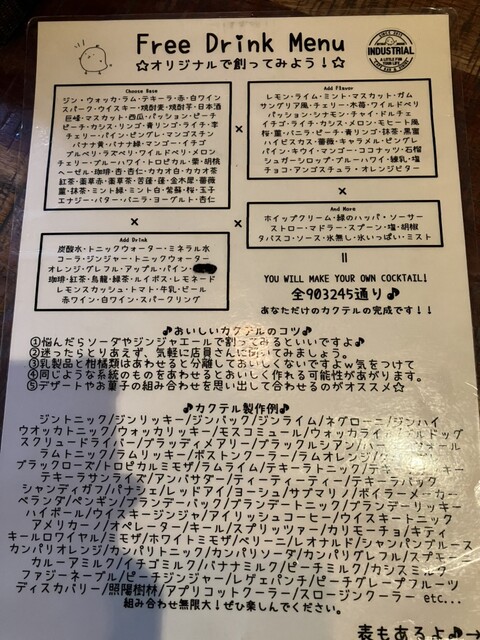 Free Drink Menu
☆オリジナルで創ってみよう!☆
INDUSTRIAL
Choose Base
ジン・ウォッカ・ラム・テキーラ・赤・白ワイン
スパーク・ウイスキー・焼酎麦・焼酎芋・日本酒
巨峰・マスカット・西瓜・パッション・ピーチ
ピーチ・カシス・リンゴ・青リンゴ・ライチ・李
チェリー・パイン・ピング・マンゴスチン
バナナ黄・バナナ緑・マンゴー・イチゴ
ブルベリ・ラズベリ・ワイルドベリ・メロン
チェリー・ブルーハワイ・トロピカル・栗・胡桃
ヘーゼル・珈琲・杏・杏仁・カカオ白・カカオ茶
紅茶・薬草赤・薬草茶・苦蓬・蓮・金木犀・薔薇
菫・抹茶・ミント緑・ミント白・紫蘇・桜・玉子
エナジー・バター・バニラ・ヨーグルト・杏仁
×
Add Flavor
レモン・ライム・ミント・マスカット・ガム
サングリア風・チェリー・木苺・ワイルドベリ
パッション・シナモン・チャイ・ドルチェ
イチゴ・ライチ・カシス・メロン・モヒート風
桜・菫・バニラ・ピーチ・青リンゴ・抹茶・黒蜜
ハイビスカス・薔薇・キャラメル・ピングレ
パイン・キウイ・マンゴー・ココナッツ・石榴
シュガーシロップ・ブルーハワイ・練乳・塩
チョコ・アンゴスチュラ・オレンジビター
×
×
Add Drink
炭酸水・トニックウォーター・ミネラル水
コーラ・ジンジャー・トニックウォーター
オレンジ・グレフル・アップル・パイン・
珈琲・紅茶・烏龍・緑茶・ルイボス・レモネード
レモンスカッシュ・トマト・牛乳・ビール
赤ワイン・白ワイン・スパークリング
×
And More
ホイップクリーム・緑のハッパ・ソーサー
ストロー・マドラー・スプーン・塩・胡椒
タバスコ・ソース・氷無し・氷いっぱい・ミスト
=
YOU WILL MAKE YOUR OWN COCKTAIL!
全903245通り♪
あなただけのカクテルの完成です!!
♪おいしいカクテルのコツ♪
①悩んだらソーダやジンジャエールで割ってみるといいですよ♪
②迷ったらとりあえず、気軽に店員さんに聞いてみましょう。
③乳製品と柑橘類はあわせると分離しておいしくないですよw気をつけて
④同じような系統のものをあわせるとおいしく作れる可能性があがります。
⑤デザートやお菓子の組み合わせを思い出して合わせるのがオススメ☆
♪カクテル製作例♪
ジントニック/ジンリッキー/ジンバック/ジンライム/ネグローニ/ジンハイ
ウオッカトニック/ウォッカリッキー/モスコミュール/ウォッカライ
スクリュードライバー/ブラッディメアリー/ブラックルシアン
ラムトニック/ラムリッキー/ボストンクーラー/ラムオレンジ
ブラックローズ/トロピカルミモザ/ラムライム/テキーラトニック/テキ
テキーラサンライズ/アンバサダー/ティーティーティー/テキーラバック
シャンディガフ/パナシェ/レッドアイ/ヨーシュ/サブマリノ/ボイラーメーカー
ベランダ/ペンギン/ブランデーバック/ブランデートニック/ブランデーリッキー
ハイボール/ウイスキージンジャ/アイリッシュコーヒー/ウイスキートニック
アメリカーノ/オペレーター/キール/スプリッツァー/カリモーチョ/キティ
キールロワイヤル/ミモザ/ホワイトミモザ/ベリーニ/レオナルド/シャンパングレース
カンパリオレンジ/カンパリトニック/カンパリソーダ/カンパリグレフル/スプモー
カルーアミルク/イチゴミルク/バナナミルク/ピーチミルク/カシスミルク
ファジーネーブル/ピーチジンジャー/レゲエパンチ/ピーチグレープフルーツ
ディスカバリー/照陽樹林/アプリコットクーラー/スロージンクーラー etc...
組み合わせ無限大!ぜひ楽しんでください。
表もあるよ♪→